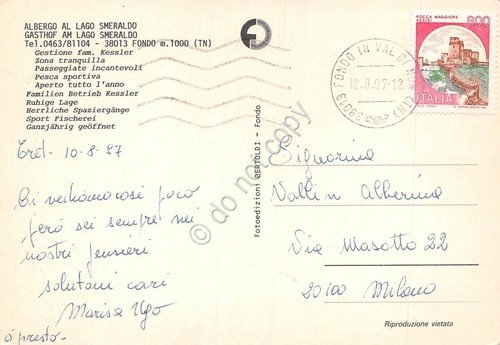 ALBERGO AL LAGO SMERALDO
GASTHOF AM LAGO SMERALDO
Tel.0463/81104 - 38013 FONDO m.1000 (TN)
Gestione fam. Kessler
Zona tranquilla
Passeggiate incantevoli
Pesca sportiva
Aperto tutto l'anno
Familien Betrieb Kessler
Ruhige Lage
Herrliche Spaziergänge
Sport Fischerei
Ganzjährig geöffnet
10-8-97
Ci vediamo così poco
però sei sempre nei
nostri pensieri
salutoni cari
Marisa Ugo
a presto-
Fotoedizioni BERTOLDI - Fondo
38013 FONDO IN VAL DI
12.8.97-12
(TN)
ROCCA MAGGIORE
800
ITALIA
Signorina
Vallin Albertina
Via Masotto 22
20100 Milano
Riproduzione vietata
do not copy